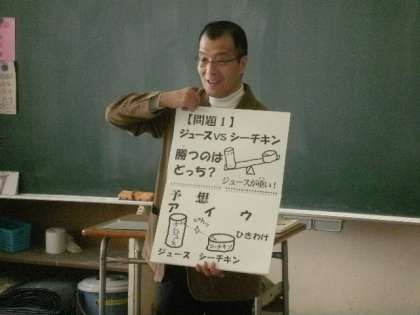 【問題1】
ジュースVSシーチキン
勝つのは
どっち？
ジュースが重い！
予想
ア イ ウ
ジュース
シーチキン
ひきわけ
ジュース シーチキン